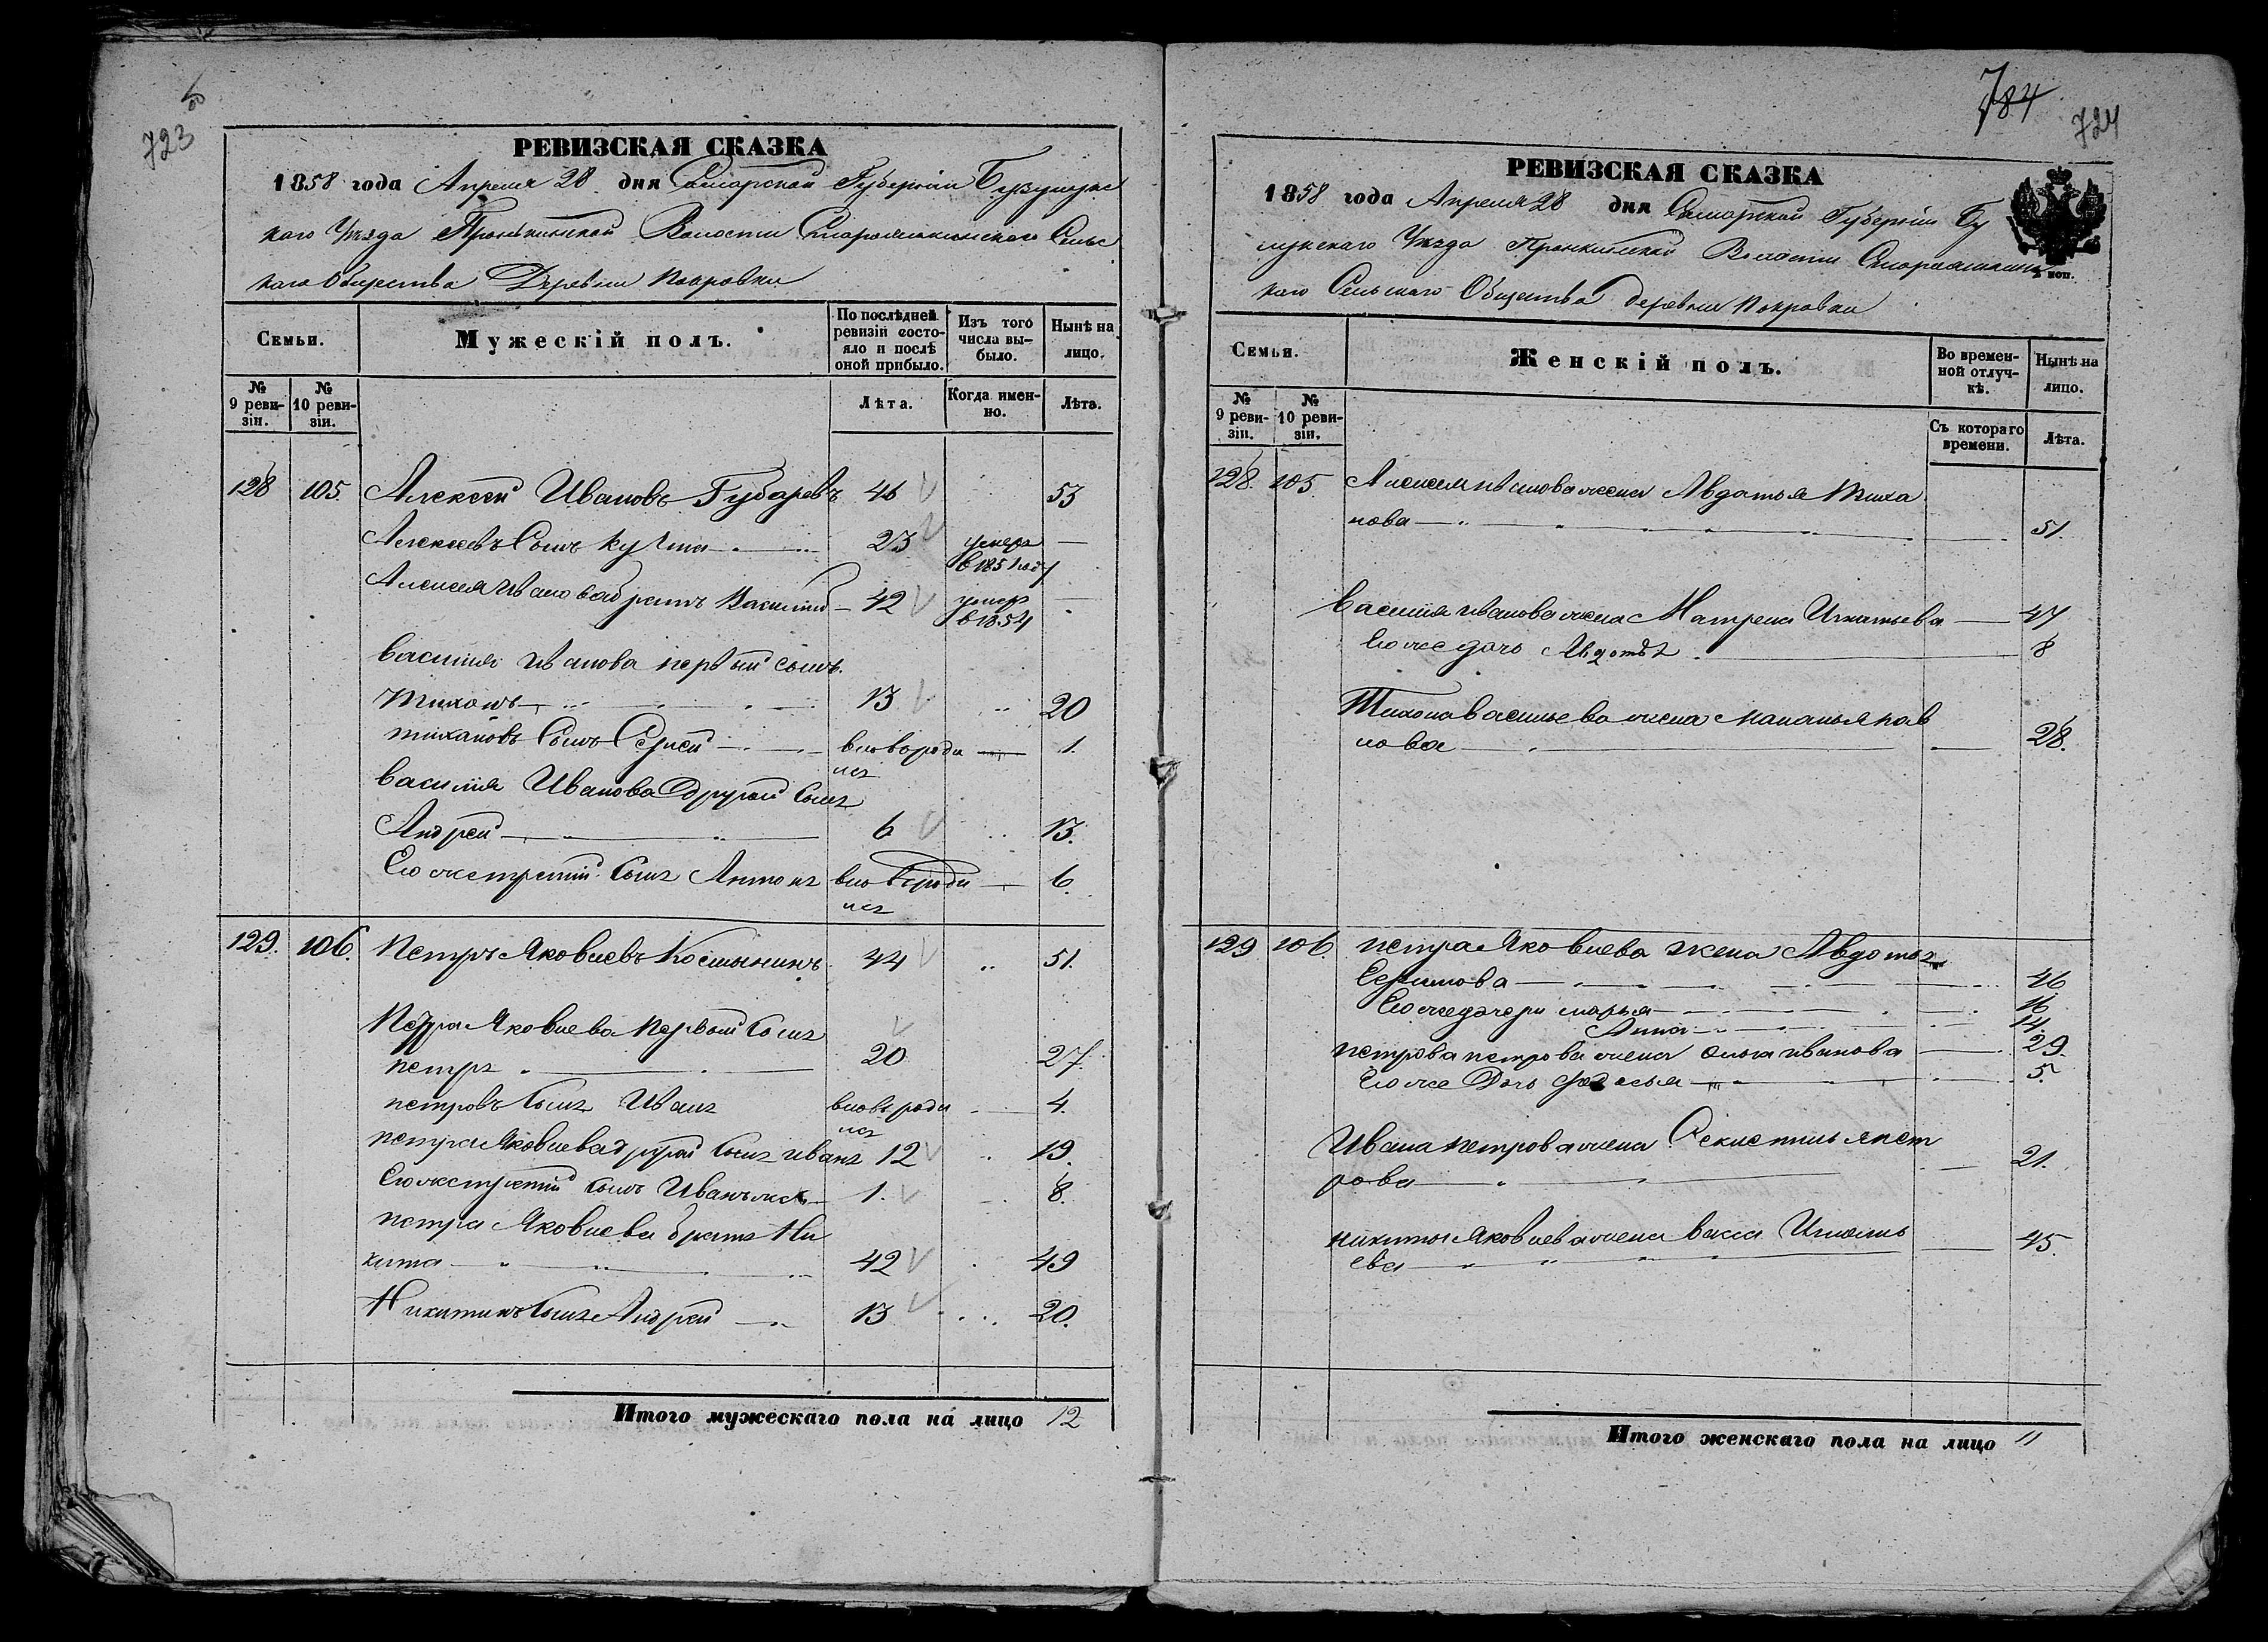 723
РЕВИЗСКАЯ СКАЗКА
1858 года Апреля 28 дня Самарской Губернии Бузулукс
каго Уѣзда Пронькинской Волости Сельс
каго Общества Деревни Покровки
Семьи.
Мужескій полъ.
По послѣдней ревизіи состояло и послѣ оной прибыло.
Изъ того числа выбыло.
Нынѣ на лицо.
№ 9 ревизіи.
№ 10 ревизіи.
Лѣта.
Когда именно.
Лѣта.
128 105. Алексей Ивановъ Губаревъ 46 53
Алексеевъ Сынъ 23 умеръ —
в 1851 году
Алексея Иванова братъ Василий — 42 умер —
в 1854
Василия Иванова первый сынъ
Тихонъ 13 20
тихановъ Сынъ Сергей вновь роди 1.
лся
Василия Иванова Другой Сынъ
Андрей 6 13.
Его же третий Сынъ Антонъ вновь роди 6.
лся
129. 106. Петръ Яковлевъ Костынинъ 44 51.
Петра Яковлева Первый Сынъ
петръ 20 27.
петровъ Сынъ Иванъ вновь роди 4.
лся
петра Яковлева другой Сынъ иванъ 12 19.
Его же третий сынъ Иванъ же 1. 8.
петра Яковлева братъ Ни
кита 42 49
Никитинъ Сынъ Андрей 13 20.
Итого мужескаго пола на лицо 12
784
724
РЕВИЗСКАЯ СКАЗКА
1858 года Апреля 28 дня Самарской Губернии Бу
Уѣзда Пронкинской Волости
каго Сельскаго Общества деревни Покровки
коп.
Семьи.
Женскій полъ.
Во временной отлучкѣ.
Нынѣ на лицо.
№ 9 ревизіи.
№ 10 ревизіи.
Съ котораго времени.
Лѣта.
128. 105 Алексея иванова жена Авдотья Тиха
нова 51.
Василия иванова жена Матрена Игнатьева 47
Его же дочь 8
Тихона васильева жена маланья пав
лова 28.
129 106. петра Яковлева жена Авдотья
Ефимова 46
Его же дочери марья 16
Анна 14.
петрова петрова жена ольга иванова 29.
Его же Дочь 5.
Ивана петрова жена пет
рова 21.
никиты Яковлева жена васса
ева 45.
Итого женскаго пола на лицо 11